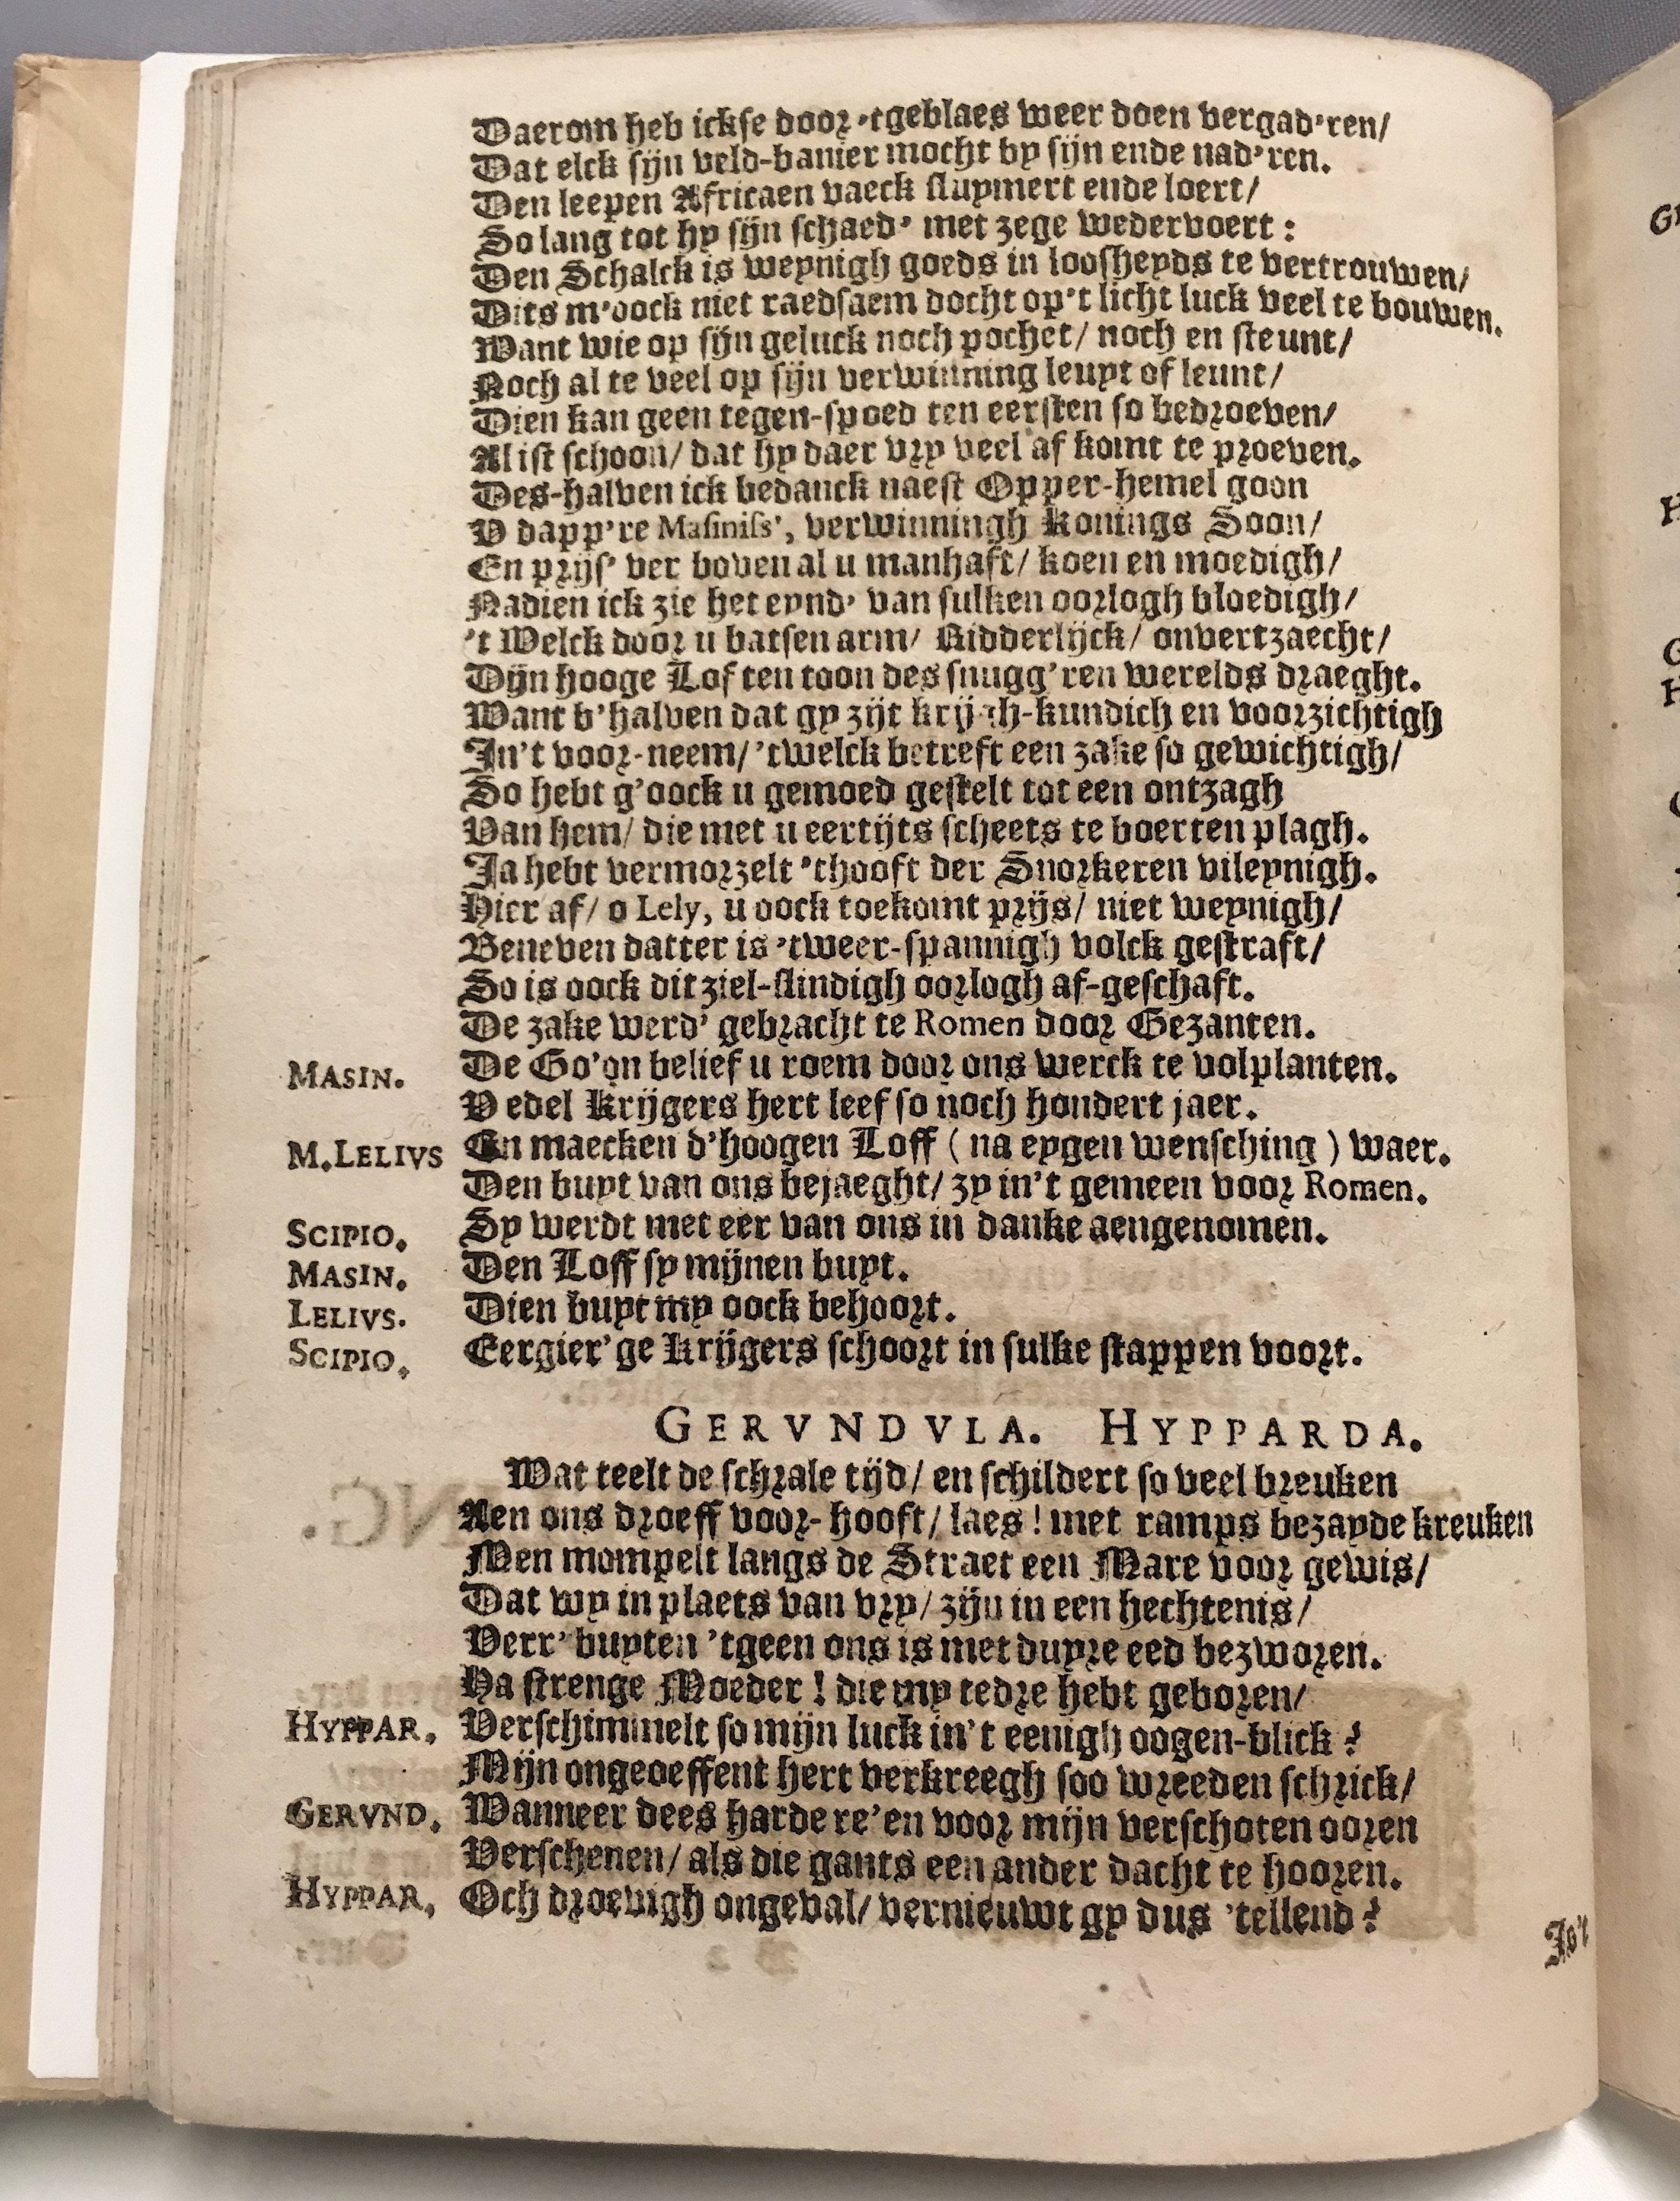 Daerom heb ickse door 'tgeblaes weer doen vergad'ren/
Dat elck sijn veld-banier mocht by sijn ende nad'ren.
Den leepen Africaen vaeck sluymert ende loert/
So lang tot hy sijn schaed' met zege wedervoert:
Den Schalck is weynigh goeds in loosheyds te vertrouwen/
Dits m'oock niet raedsaem docht op't licht luck veel te bouwen.
Want wie op sijn geluck noch pochet/ noch en steunt/
Noch al te veel op sijn verwinning leuyt of leunt/
Dien kan geen tegen-spoed ten eersten so bedroeven/
Al ist schoon/ dat hy daer vry veel af komt te proeven.
Des-halven ick bedanck naest Opper-hemel goon
V dapp're Masiniss', verwinningh Konings Soon/
En prijs' ver boven al u manhaft/ koen en moedigh/
Nadien ick zie het eynd' van sulken oorlogh bloedigh/
't Welck door u batsen arm/ Ridderlijck/ onvertzaecht/
Dijn hooge Lof ten toon des snugg'ren werelds draeght.
Want b'halven dat gy zijt krijgh-kundich en voorzichtigh
In't voor-neem/ 'twelck betreft een zake so gewichtigh/
So hebt g'oock u gemoed gestelt tot een ontzagh
Van hem/ die met u eertijts scheets te boerten plagh.
Ja hebt vermorzelt 'thooft der Snorkeren vileynigh.
Hier af/ o Lely, u oock toekomt prijs/ niet weynigh/
Beneven datter is 'tweer-spannigh volck gestraft/
So is oock dit ziel-slindigh oorlogh af-geschaft.
De zake werd' gebracht te Romen door Gezanten.
MASIN. De Go'on belief u roem door ons werck te volplanten.
V edel Krijgers hert leef so noch hondert jaer.
M.LELIVS En maecken d'hoogen Loff (na eygen wensching) waer.
Den buyt van ons bejaeght/ zy in't gemeen voor Romen.
SCIPIO. Sy werdt met eer van ons in danke aengenomen.
MASIN. Den Loff sy mijnen buyt.
LELIVS. Dien buyt my oock behoort.
SCIPIO. Eergier'ge Krijgers schoort in sulke stappen voort.
GERVNDVLA. HYPPARDA.
Wat teelt de schrale tijd/ en schildert so veel breuken
Aen ons droeff voor-hooft/ laes! met ramps bezayde kreuken
Men mompelt langs de Straet een Mare voor gewis/
Dat wy in plaets van vry/ zijn in een hechtenis/
Verr' buyten 'tgeen ons is met duyre eed bezworen.
Ha strenge Moeder! die my tedre hebt geboren/
HYPPAR. Verschimmelt so mijn luck in't eenigh oogen-blick?
Mijn ongeoeffent hert verkreegh soo wreeden schrick/
GERVND. Wanneer dees harde re'en voor mijn verschoten ooren
Verschenen/ als die gants een ander dacht te hooren.
HYPPAR. Och droevigh ongeval/ vernieuwt gy dus 'tellend?
Is't